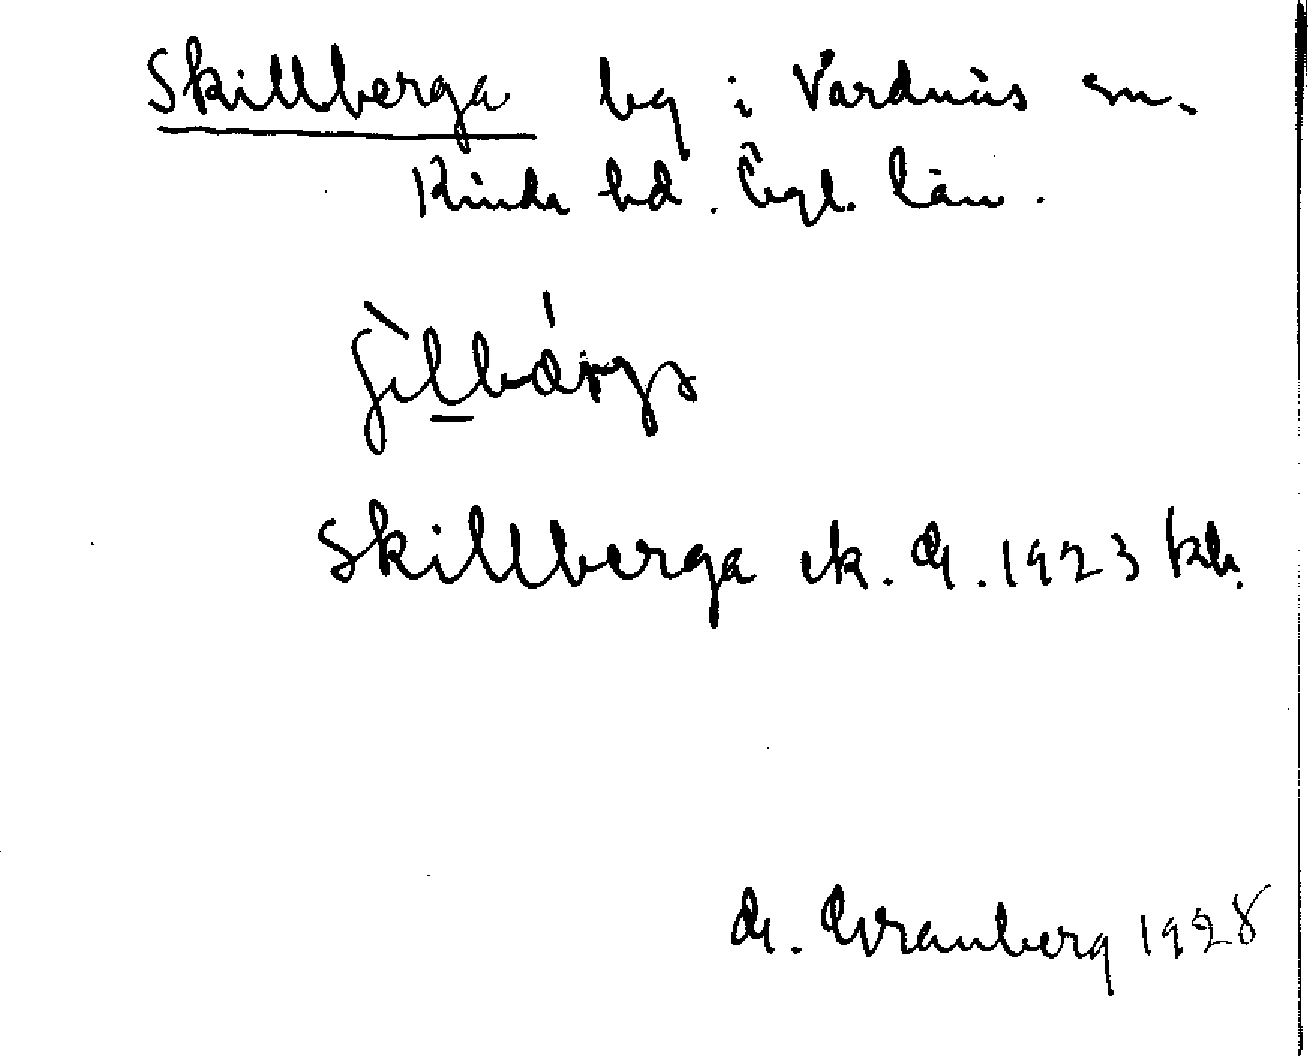 Skillberga by i Vårdnäs sn.
Kinda hd. Ögl. län.
Skillberga ek. G. 1923 kb.
G. Granberg 1928